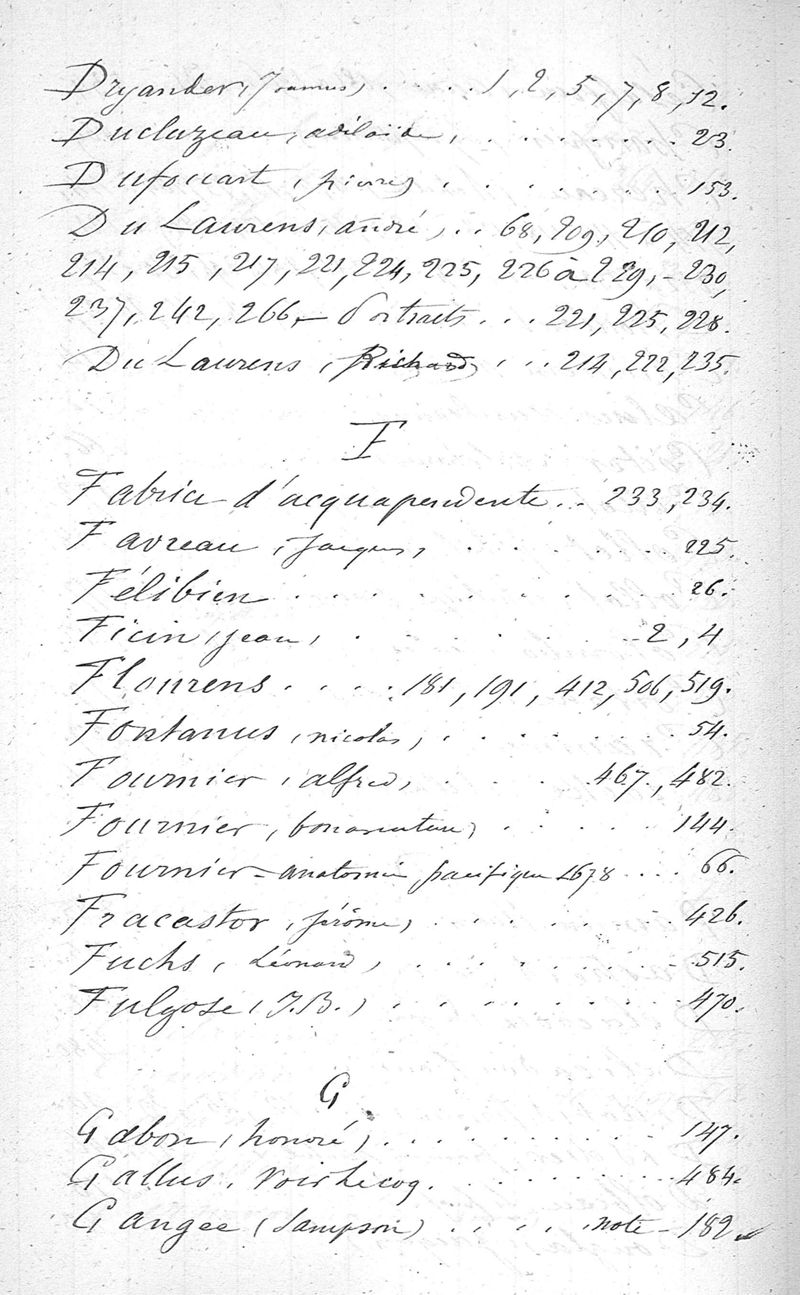 Dryander (Joannes) . . . . . 1, 2, 5, 7, 8, 12.
Ducluzeau, adélaïde, . . . . . . . . . 23.
Dufouart (pierre) . . . . . . . . 153.
Du Laurens, andré, . . 68, 209, 210, 212,
214, 215, 217, 221, 224, 225, 226 à 229, - 230,
237, 242, 266, - Portraits . . . 221, 225, 228.
Du Laurens (Richard) . . . 214, 222, 235.
F
Fabrice d'acquapendente . . 233, 234.
Favreau, Jacques, . . . . . . . 225.
Félibien . . . . . . . . . . 26.
Ficin, jean, . . . . . . . 2, 4
Flourens . . . . 181, 191, 412, 506, 519.
Fontanus (nicolas) . . . . . . . 54.
Fournier (alfred) . . . . 467, 482.
Fournier, bonaventure) . . . . . 144.
Fournier - anatomie pacifique 1678 . . . . 66.
Fracastor (jérôme) . . . . . . . 426.
Fuchs, Léonard, . . . . . . . . 515.
Fulgose (J. B.) . . . . . . . . 470.
G
Gabon (honoré) . . . . . . . . . 147.
Gallus, Voir Lecoq. . . . . . . . . 484.
Gangee (Sampson) . . . . . note - 182.